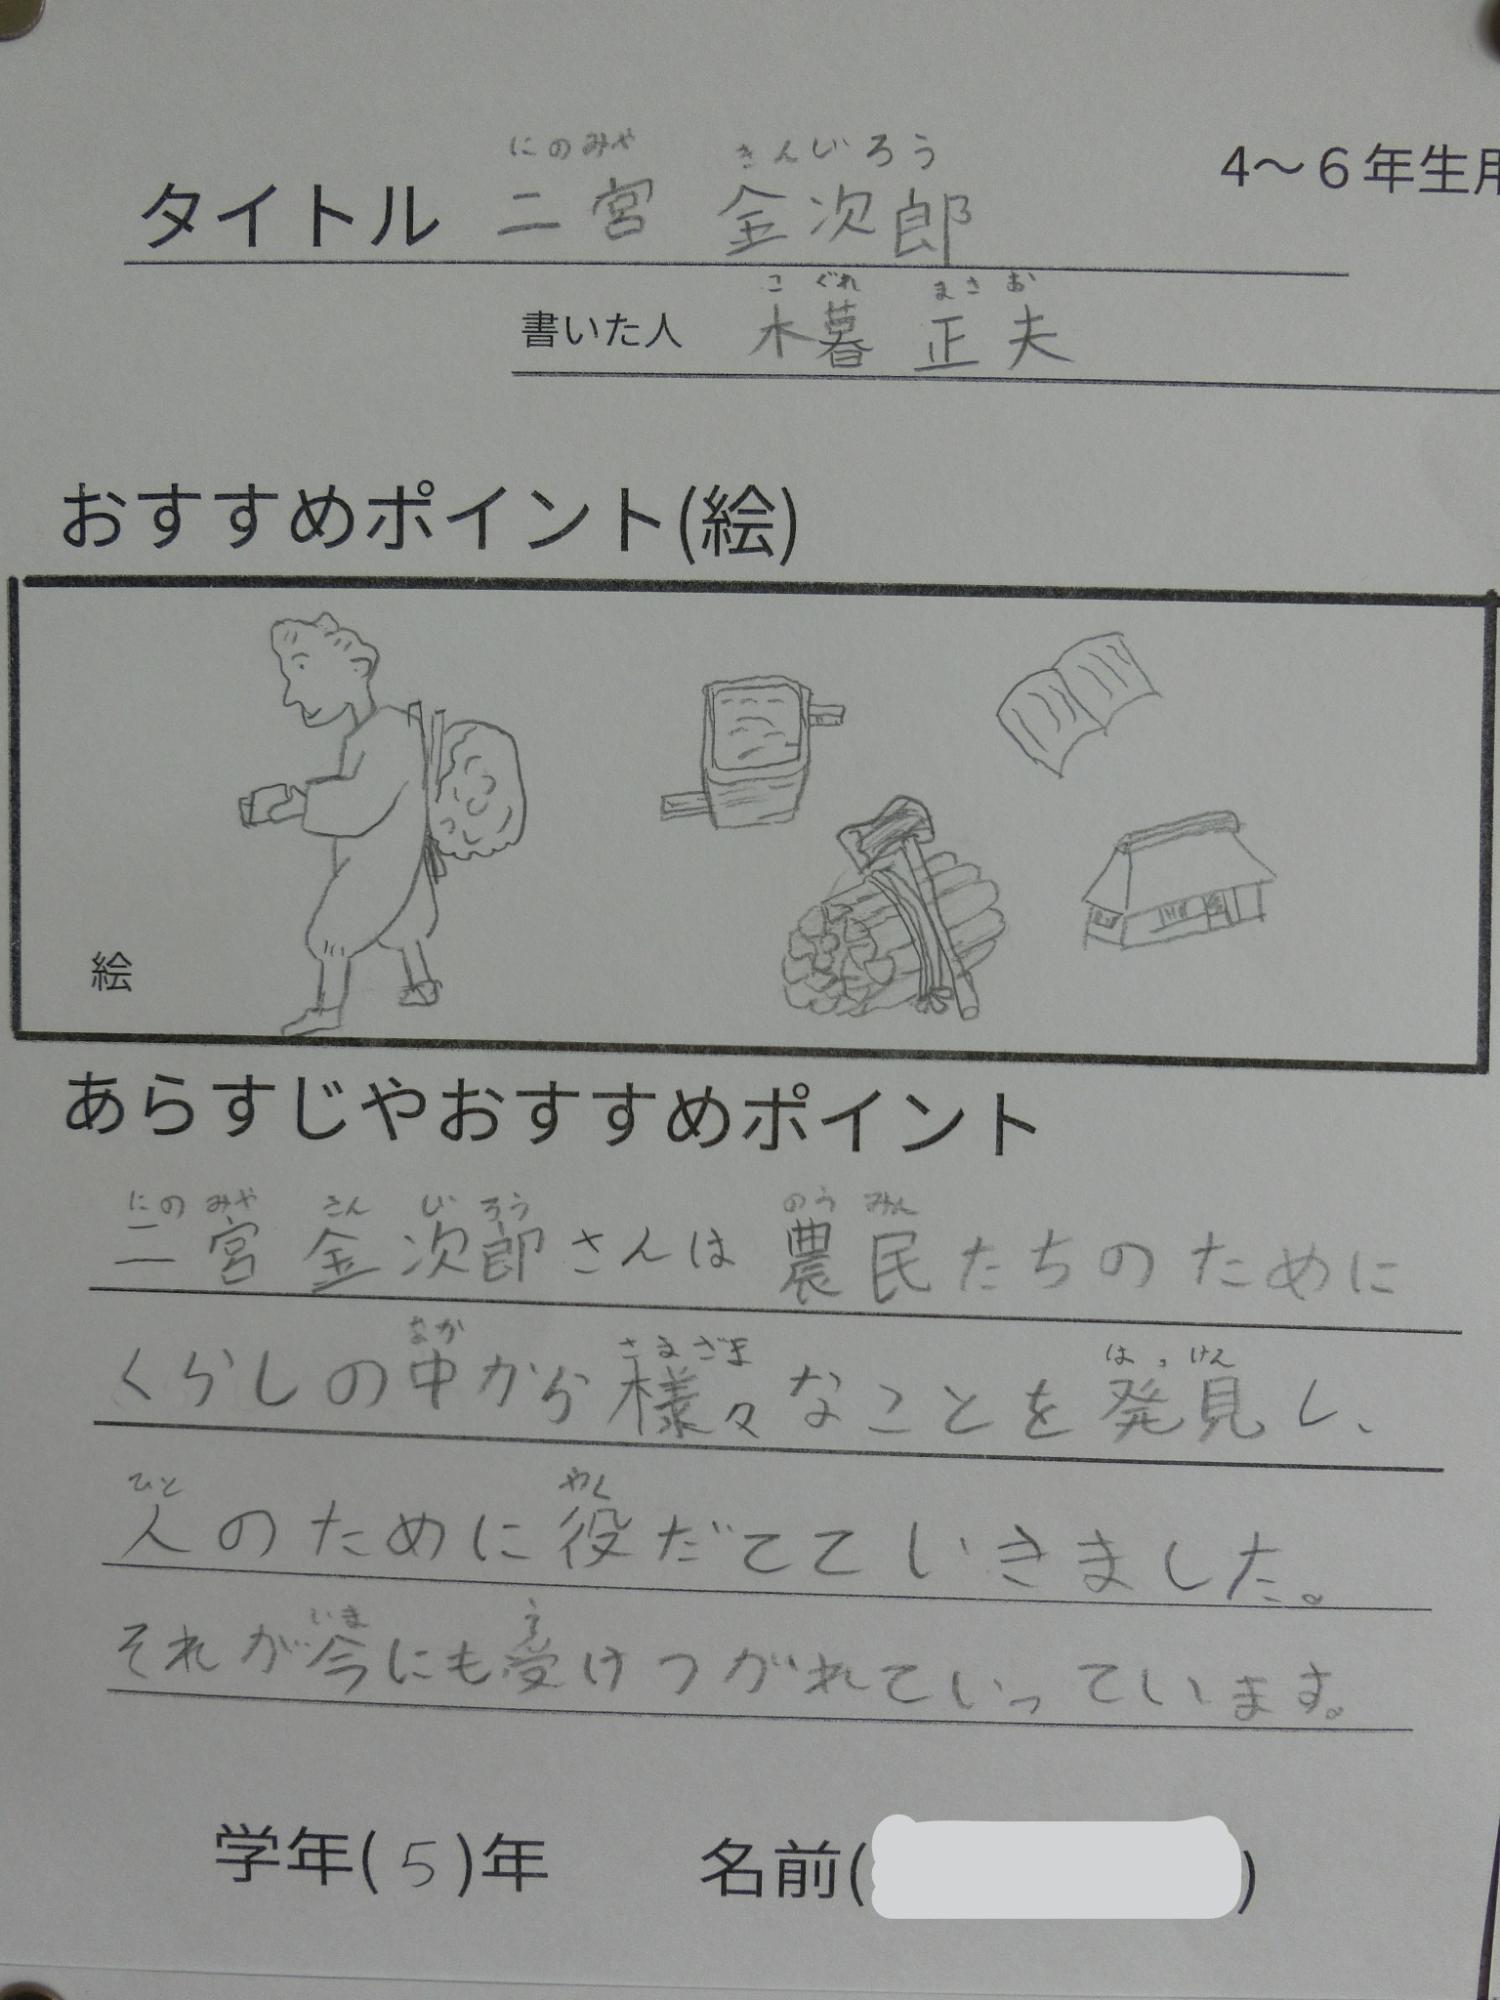 にのみや きんじろう
4～6年生用
タイトル 二宮 金次郎
こ ぐれ まさ お
書いた人 木暮 正夫
おすすめポイント(絵)
絵
あらすじやおすすめポイント
にの みや きん じ ろう のう みん
二宮 金次郎さんは 農民たちのために
なか さまざま はっけん
くらしの中から 様々なことを発見し、
ひと やく
人のために役だてていきました。
いま う
それが今にも受けつがれていっています。
学年(5)年 名前( )